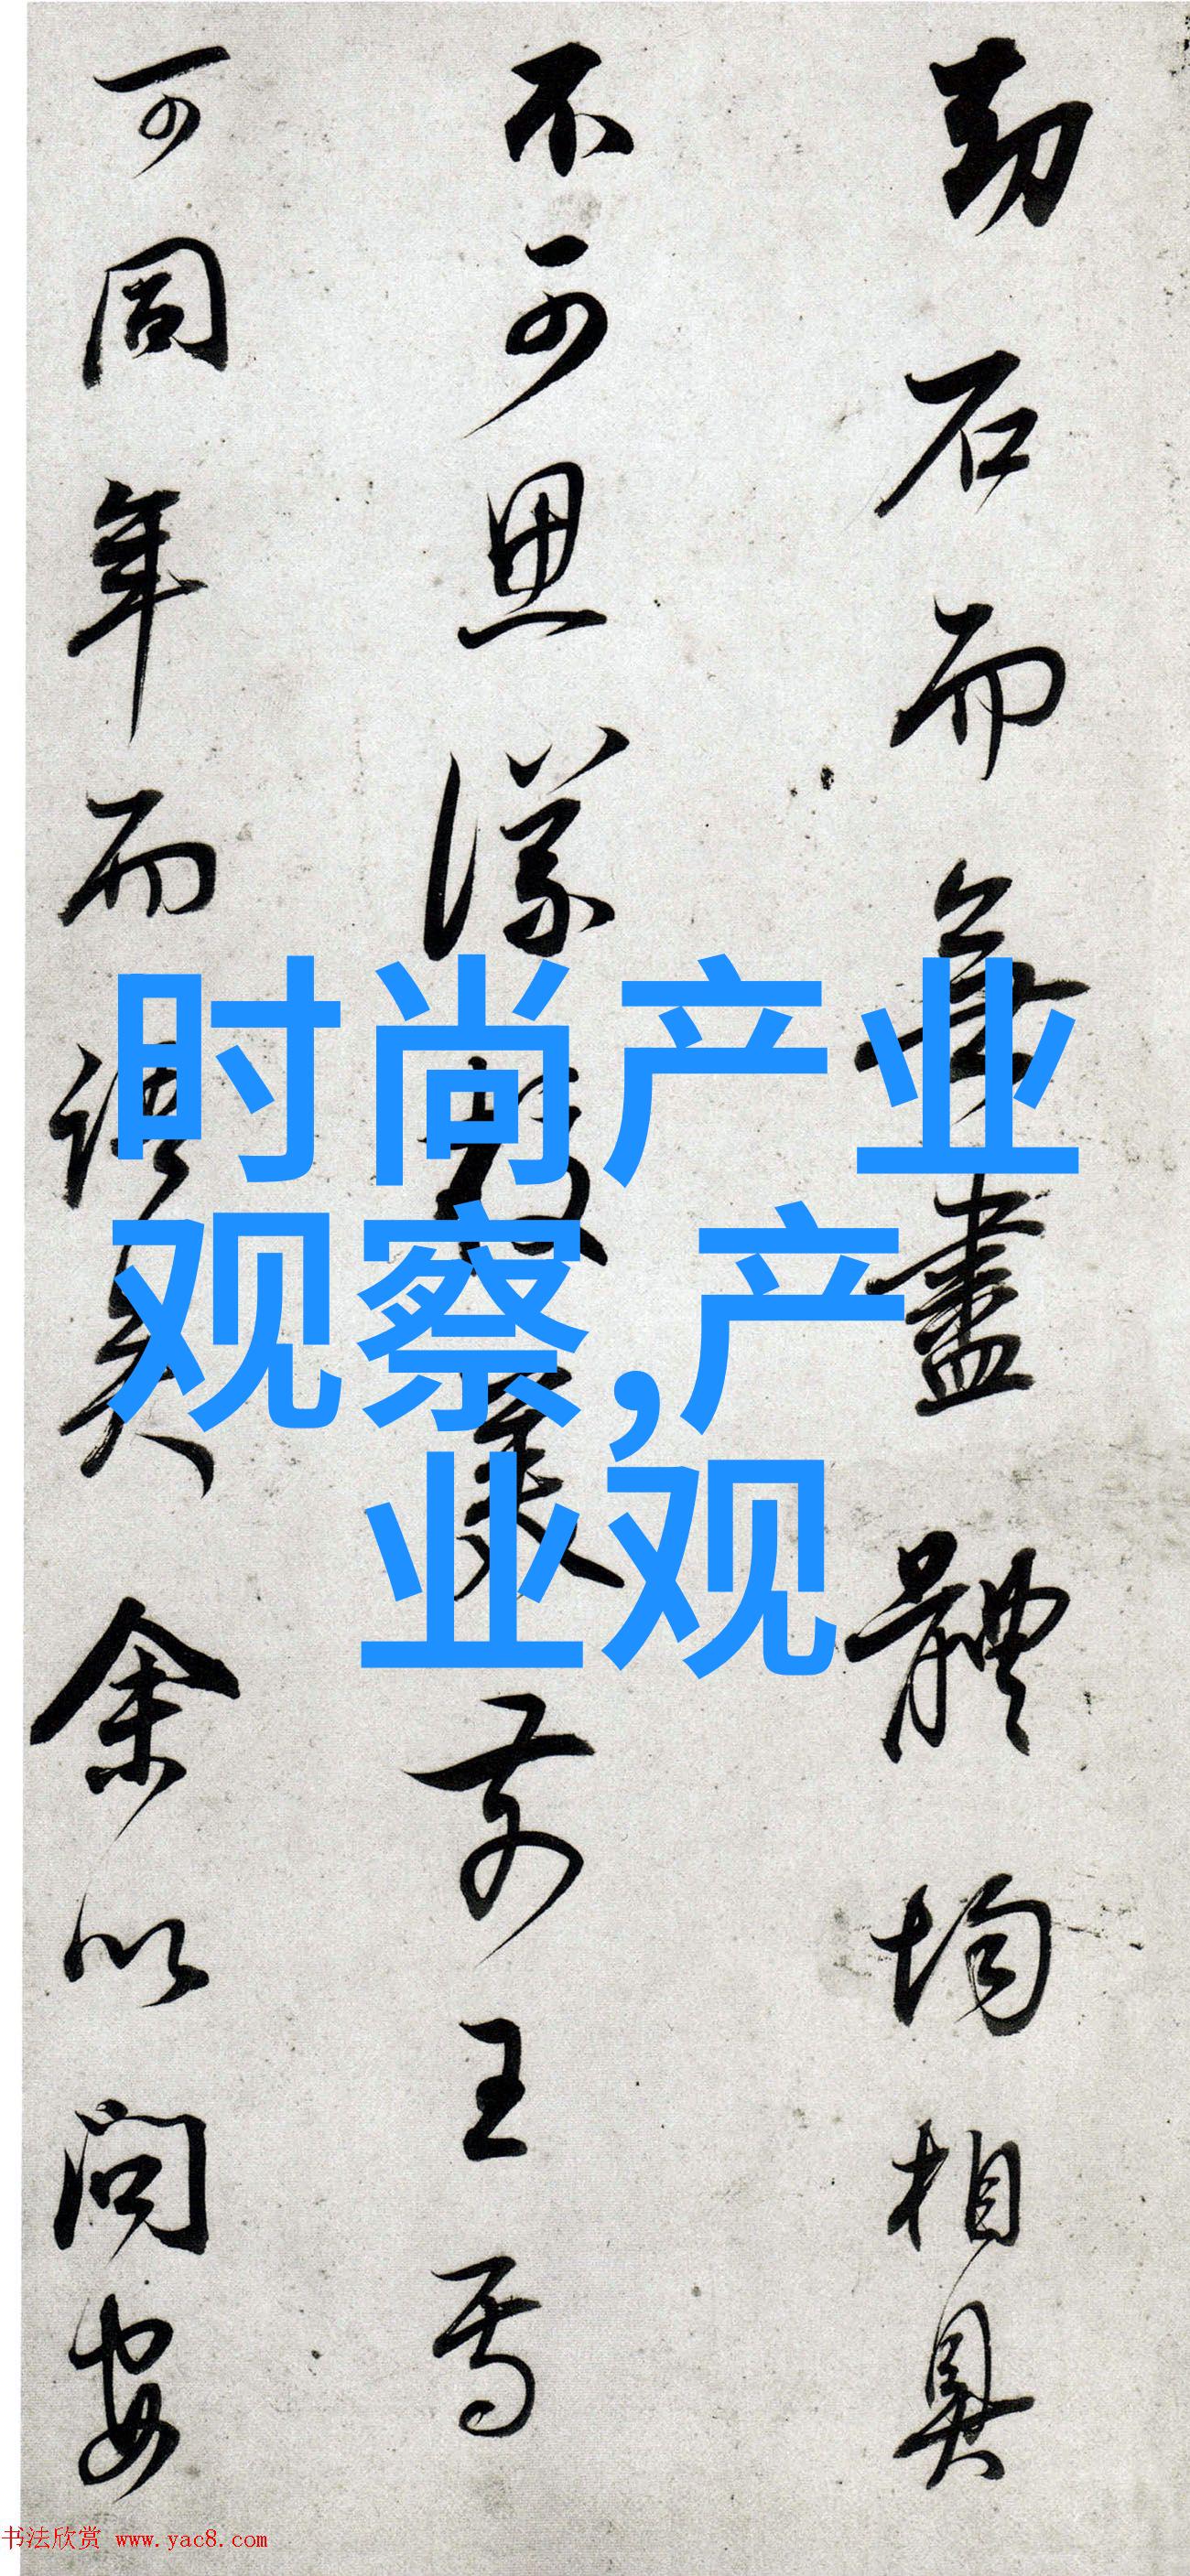 劫石而無盡體均相具
不可思議前王焉
可同年而語矣余以問安
时尚产业
观察,产
业观
书法欣赏 www.yac8.com